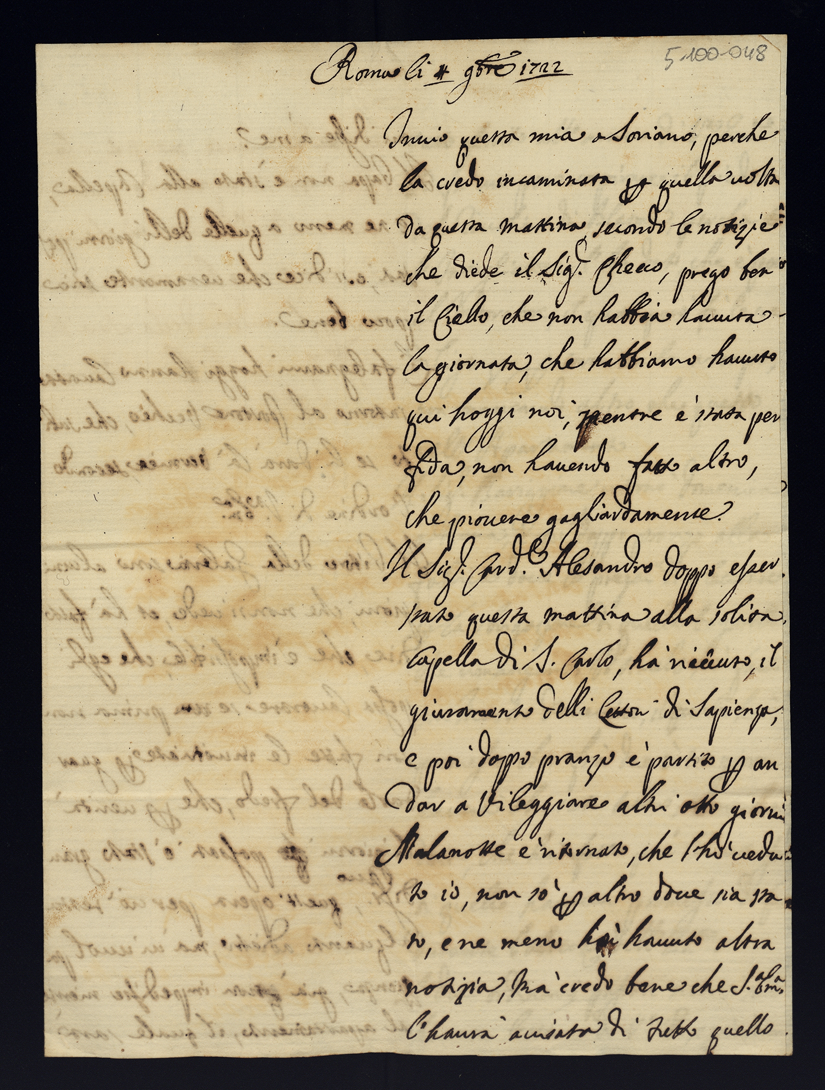 5-100-048
Roma li 4 9bre 1722
Invio questa mia a Soriano, perche
la credo incaminata p quella volta
da questa mattina, secondo le notizie
che diede il Sigr. Checco, prego ben
il Ciello, che non habbia havuta
la giornata, che habbiamo havuto
qui hoggi noi, mentre è stata per
fida, non havendo fatto altro,
che piovere gagliardamente.
Il Sigr. Card.le Alesandro doppo esser
stato questa mattina alla solita
Capella di S. Carlo, hà riceuuto, il
giuramento delli Lettori di Sapienza,
e poi doppo pranzo è partito p an
dar a Vileggiare altri otto giorni
Malanotte è ritornato, che l'hò vedu
to io, non sò p altro dove sia sta
to, e ne meno hò havuto altra
notizia, mà credo bene che S.
l'haurà avisata di tutto quello